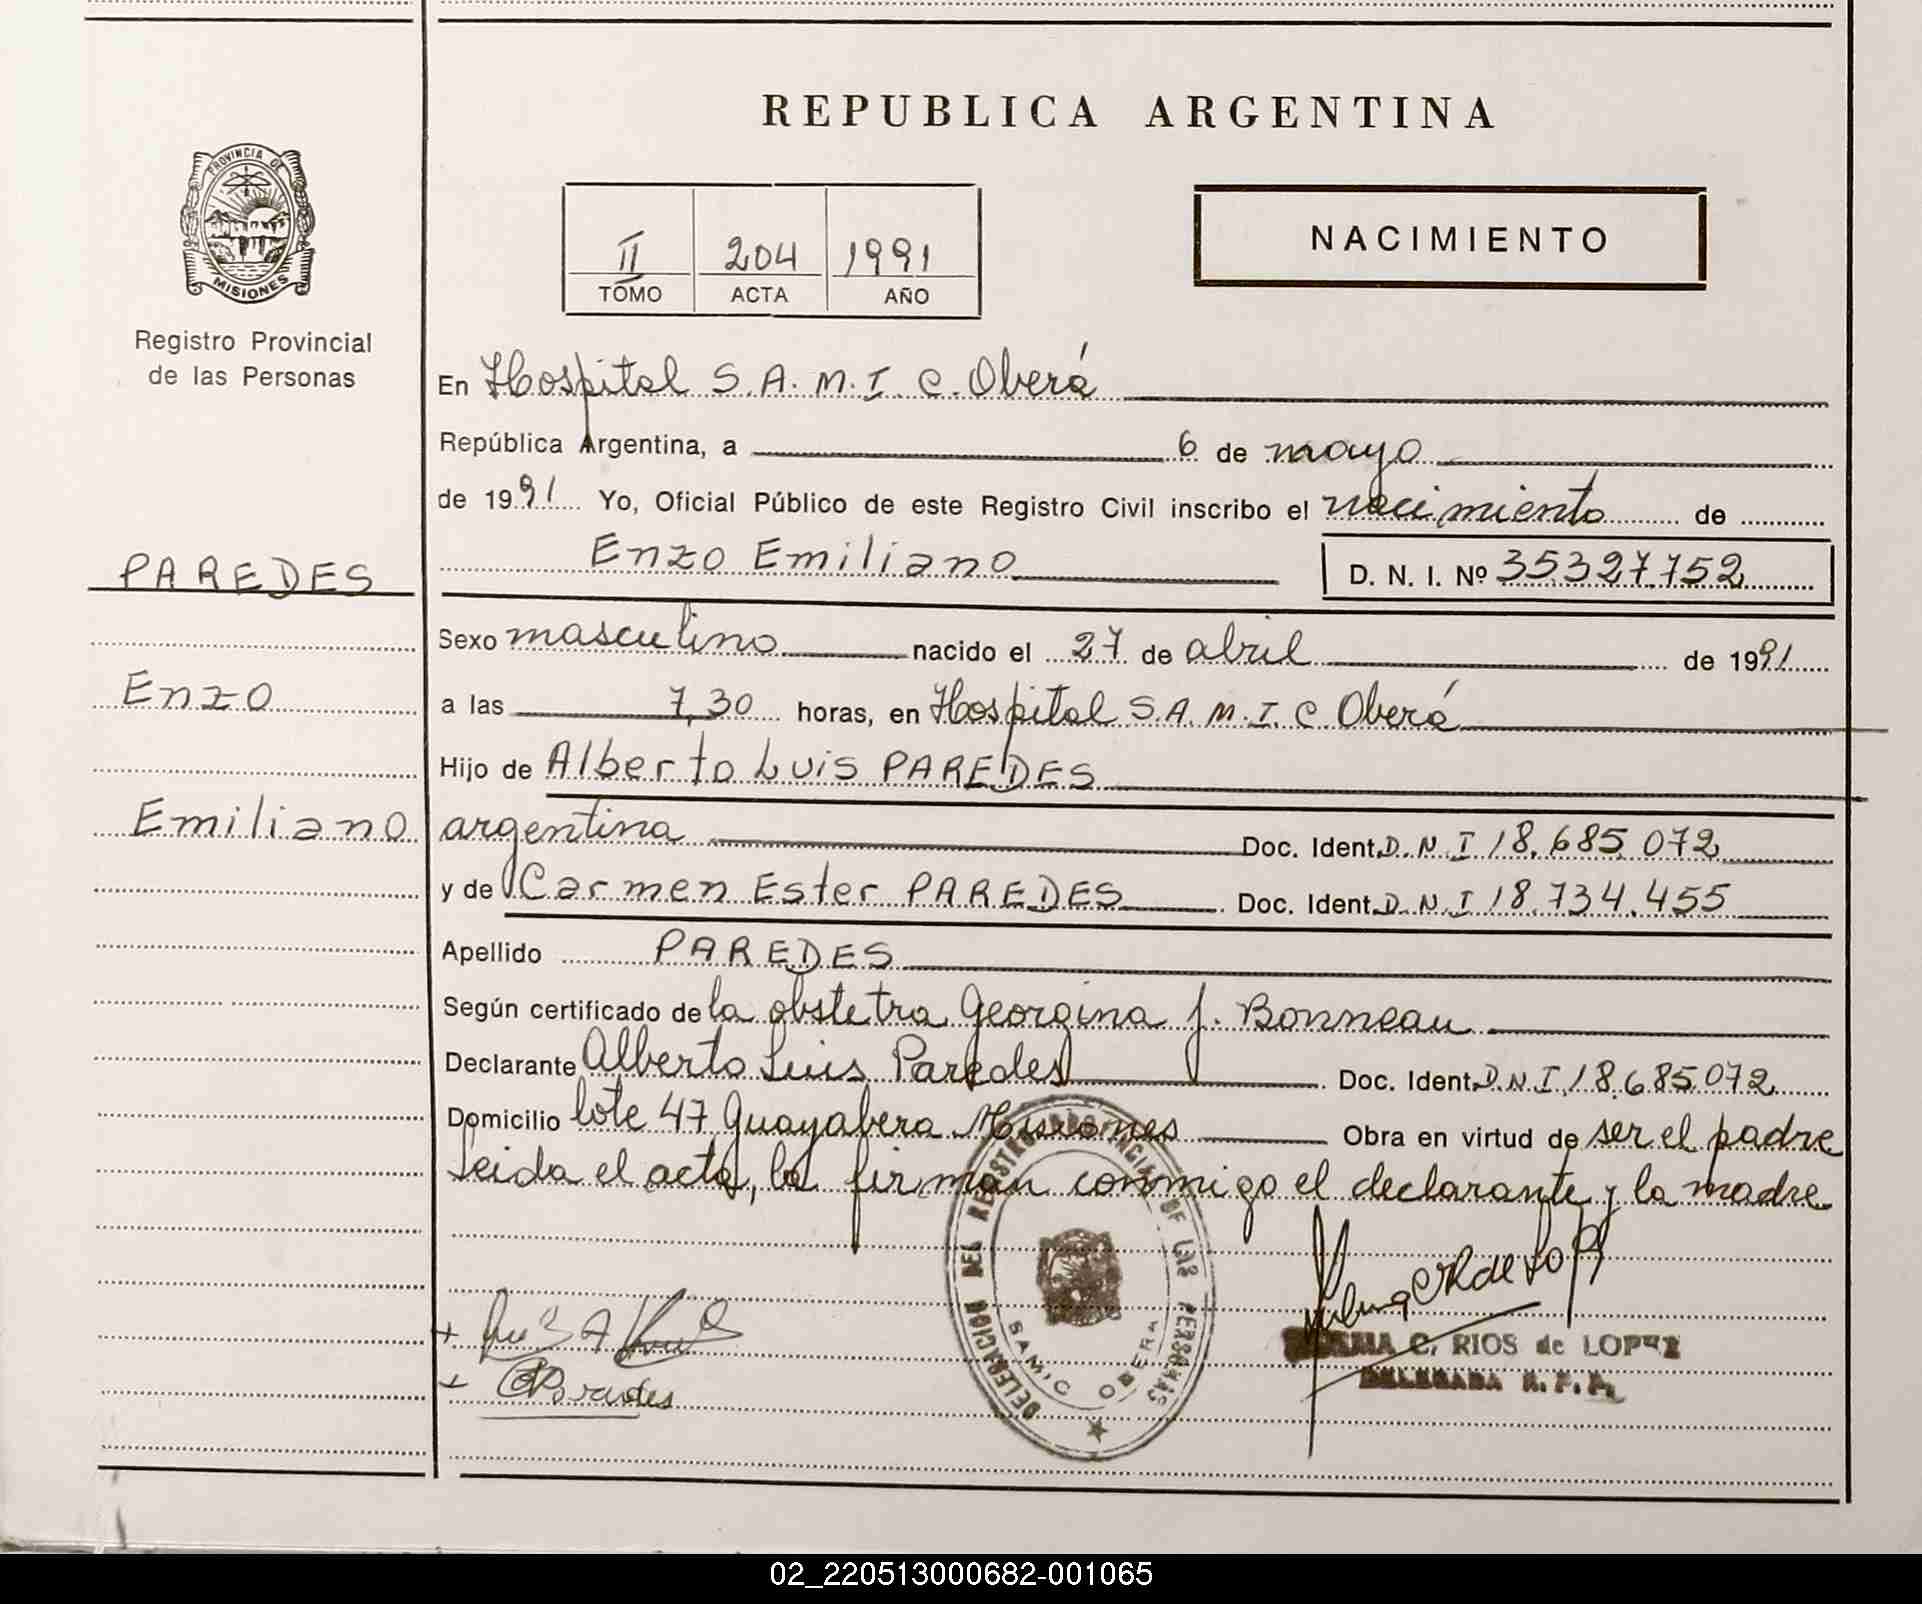 REPUBLICA ARGENTINA
PROVINCIA DE
MISIONES
Registro Provincial
de las Personas
II 204 1991
TOMO ACTA AÑO
NACIMIENTO
En Hospital S.A.M.I.C. Oberá
República Argentina, a 6 de mayo
de 1991 Yo, Oficial Público de este Registro Civil inscribo el nacimiento de
PAREDES
Enzo Emiliano D. N. I. Nº 35327752
Sexo masculino nacido el 27 de abril de 1991
Enzo
a las 7,30 horas, en Hospital S.A.M.I.C Oberá
Hijo de Alberto Luis PAREDES
Emiliano
argentina Doc. Ident. D.N.I 18.685.072
y de Carmen Ester PAREDES Doc. Ident. D.N.I 18.734.455
Apellido PAREDES
Según certificado de la obstetra Georgina J. Bonneau
Declarante Alberto Luis Paredes Doc. Ident. D.N.I. 18.685.072
Domicilio lote 47 Guayabera Misiones Obra en virtud de ser el padre
Leida el acta, la firman conmigo el declarante y la madre
DELEGACION DEL REGISTRO PROVINCIAL DE LAS PERSONAS
SAMIC OBERA
C. RIOS de LOPEZ
DELEGADA R. P. P.
Paredes
02_220513000682-001065